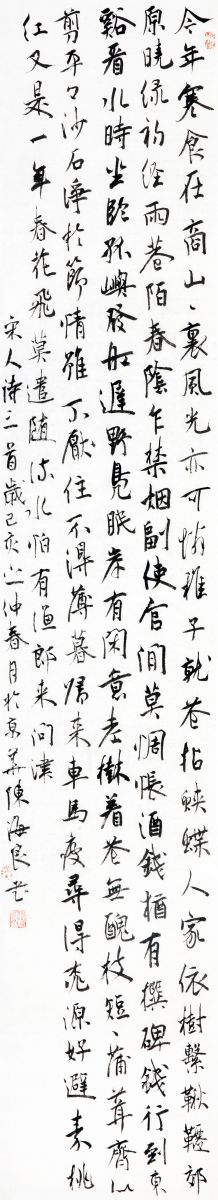 今年寒食在商山々裏風光亦可憐稚子就花拈蛺蝶人家依樹繫鞦韆郊
原曉綠初經雨巷陌春陰乍禁烟副使官閒莫惆悵酒錢猶有撰碑錢行到東
谿看水時坐臨孤嶼發船遲野鳧眠岸有閑意老樹着花無醜枝短々蒲茸齊似
剪平々沙石淨於篩情雖不厭住不得薄暮歸来車馬疲尋得桃源好避秦桃
红又是一年春花飛莫遣随流水怕有渔郎来问津
宋人詩三首歲己亥之仲春月於京華陳海良書